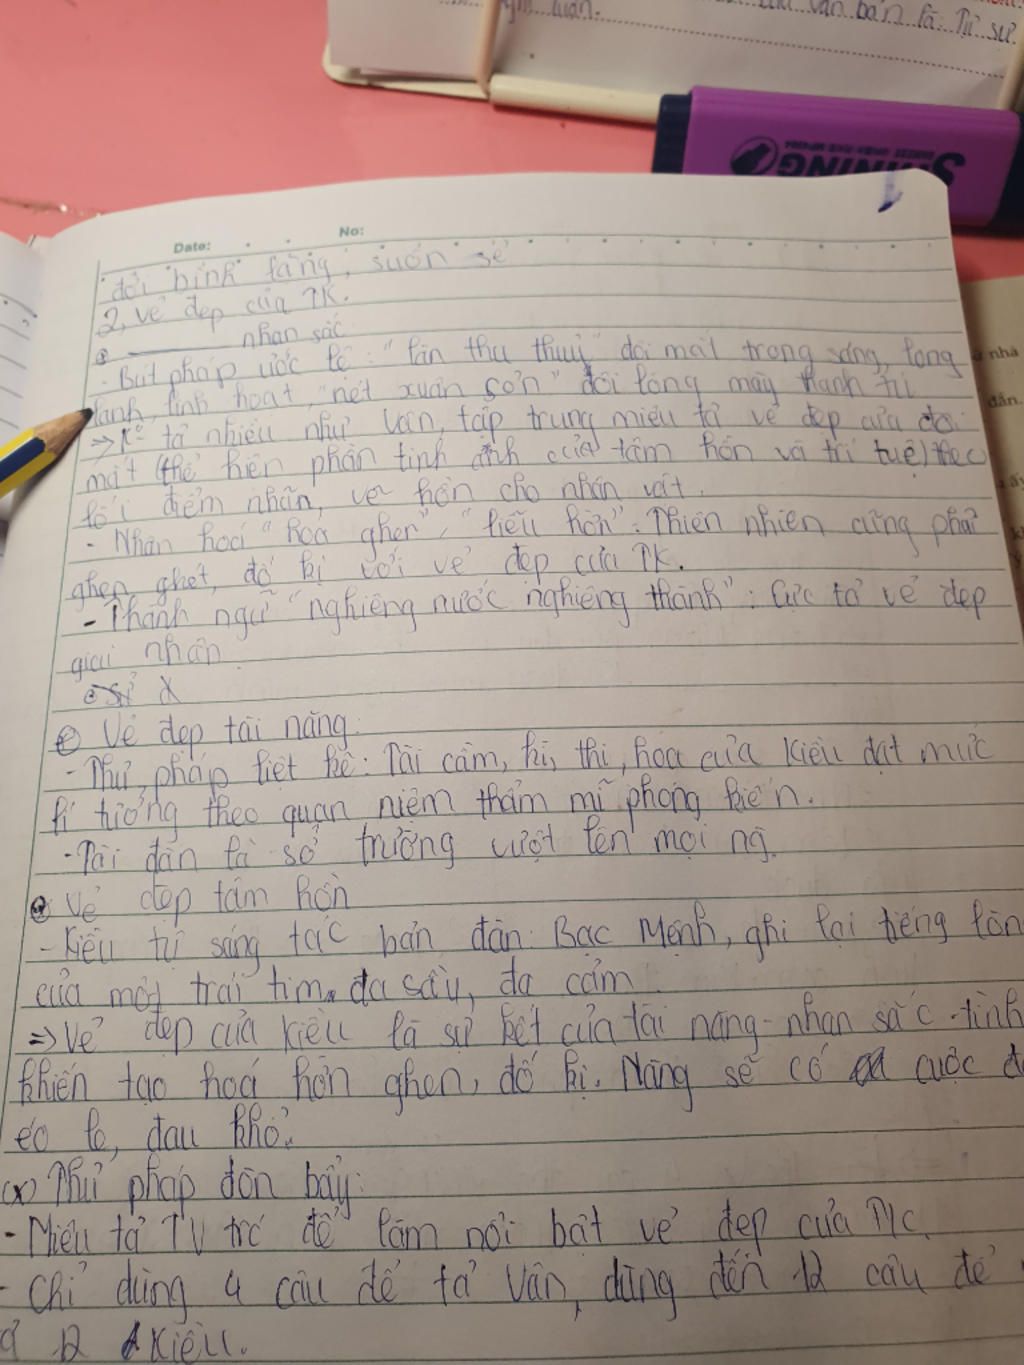 văn bản là: Tự sự.
luận.
SHINING
Date: No:
đời bình lặng, suôn sẻ
2, vẻ đẹp của TK.
nhan sắc
- Bút pháp ước lệ: "làn thu thuỷ" đôi mắt trong sáng, long
lanh, linh hoạt, "nét xuân sơn" đôi lông mày thanh tú
=> Ko tả nhiều như Vân, tập trung miêu tả vẻ đẹp của đôi
mắt (thể hiện phần tinh anh của tâm hồn và trí tuệ) theo
lối điểm nhãn, vẽ hồn cho nhân vật.
- Nhân hoá "hoa ghen", "liễu hờn": Thiên nhiên cũng phải
ghen ghét, đố kị với vẻ đẹp của TK.
- Thành ngữ "nghiêng nước nghiêng thành": Cực tả vẻ đẹp
giai nhân
Vẻ đẹp tài năng:
- Thủ pháp liệt kê: Tài cầm, kì, thi, hoạ của Kiều đạt mức
lí tưởng theo quan niệm thẩm mĩ phong kiến.
- Tài đàn là sở trường vượt lên mọi ng.
Vẻ đẹp tâm hồn
- Kiều tự sáng tác bản đàn Bạc Mệnh, ghi lại tiếng lòn
của một trái tim đa sầu, đa cảm
=> Vẻ đẹp của Kiều là sự kết của tài năng - nhan sắc - tình
khiến tạo hoá hờn ghen, đố kị. Nàng sẽ có cuộc đ
éo le, đau khổ.
(x) Thủ pháp đòn bẩy:
- Miêu tả TV trc để làm nổi bật vẻ đẹp của TK.
- Chỉ dùng 4 câu để tả Vân, dùng đến 12 câu để
ả Kiều.
nhà
dân.